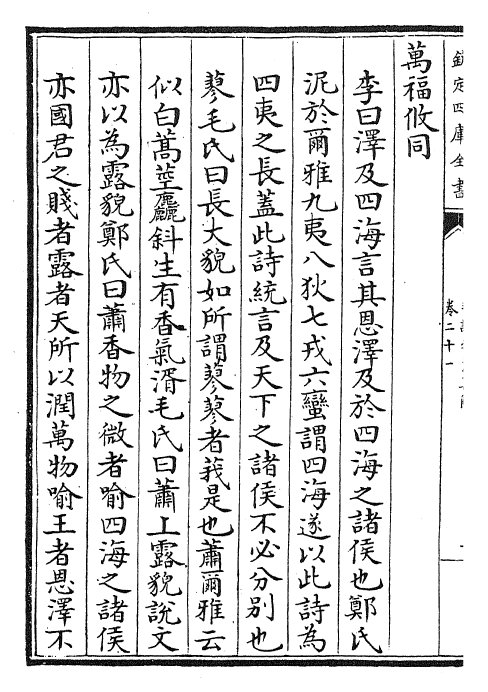 欽定四庫全書
卷二十一
萬福攸同
李曰澤及四海言其恩澤及於四海之諸侯也鄭氏
泥於爾雅九夷八狄七戎六蠻謂四海遂以此詩為
四夷之長蓋此詩統言及天下之諸侯不必分别也
蓼毛氏曰長大貌如所謂蓼蓼者莪是也蕭爾雅云
似白蒿莖麤斜生有香氣湑毛氏曰蕭上露貌說文
亦以為露貌鄭氏曰蕭香物之微者喻四海之諸侯
亦國君之賤者露者天所以潤萬物喻王者恩澤不